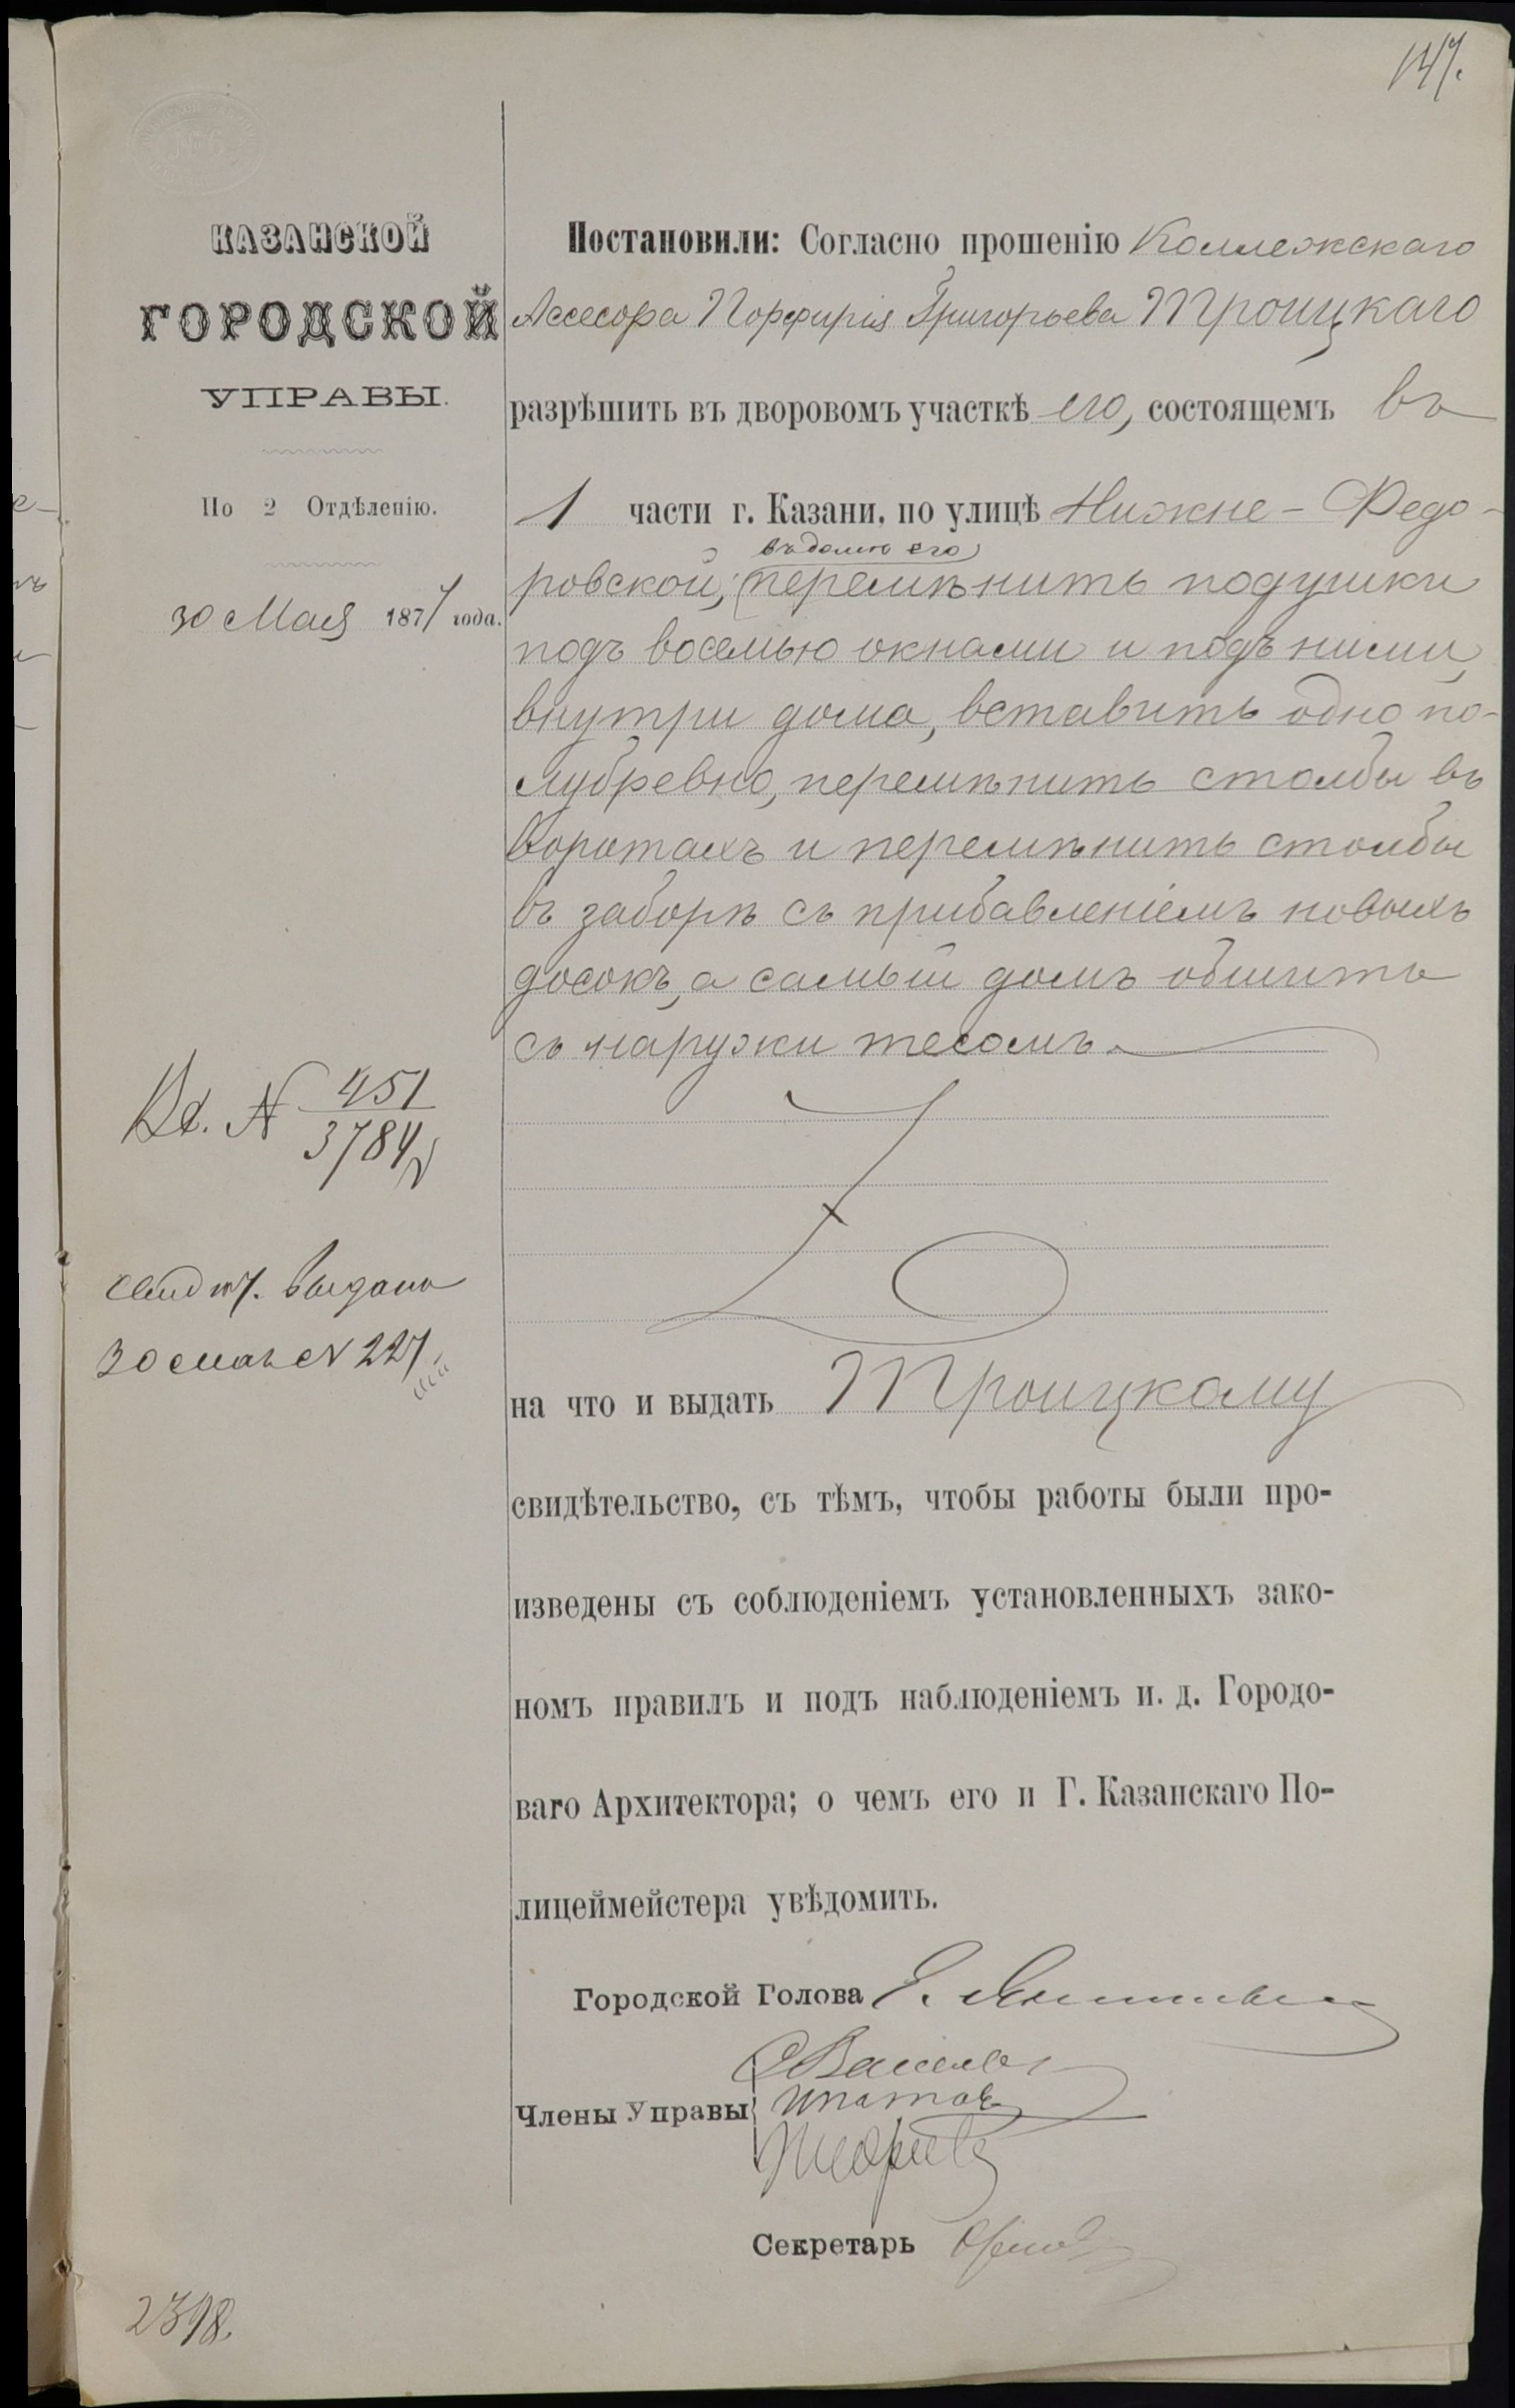 147.
КАЗАНСКОЙ
ГОРОДСКОЙ
УПРАВЫ.
По 2 Отдѣленію.
30 Мая 1877 года.
Вх. № 451
3784
выдано
30 мая № 227.
2398.
Постановили: Согласно прошенію Коллежскаго
Ассесора Порфирія Григорьева Троицкаго
разрѣшить въ дворовомъ участкѣ его, состоящемъ въ
1 части г. Казани, по улицѣ Нижне-Федо-
въ домѣ его
ровской, перемѣнить подушки
подъ восемью окнами и подъ ними,
внутри дома, вставить одно по-
лубревно, перемѣнить столбы въ
воротахъ и перемѣнить столбы
въ заборѣ съ прибавленіемъ новыхъ
досокъ, а самый домъ обшить
съ наружи тесомъ.
на что и выдать Троицкому
свидѣтельство, съ тѣмъ, чтобы работы были про-
изведены съ соблюденіемъ установленныхъ зако-
номъ правилъ и подъ наблюденіемъ и. д. Городо-
ваго Архитектора; о чемъ его и Г. Казанскаго По-
лицеймейстера увѣдомить.
Городской Голова
Члены Управы
Ипатовъ
Секретарь